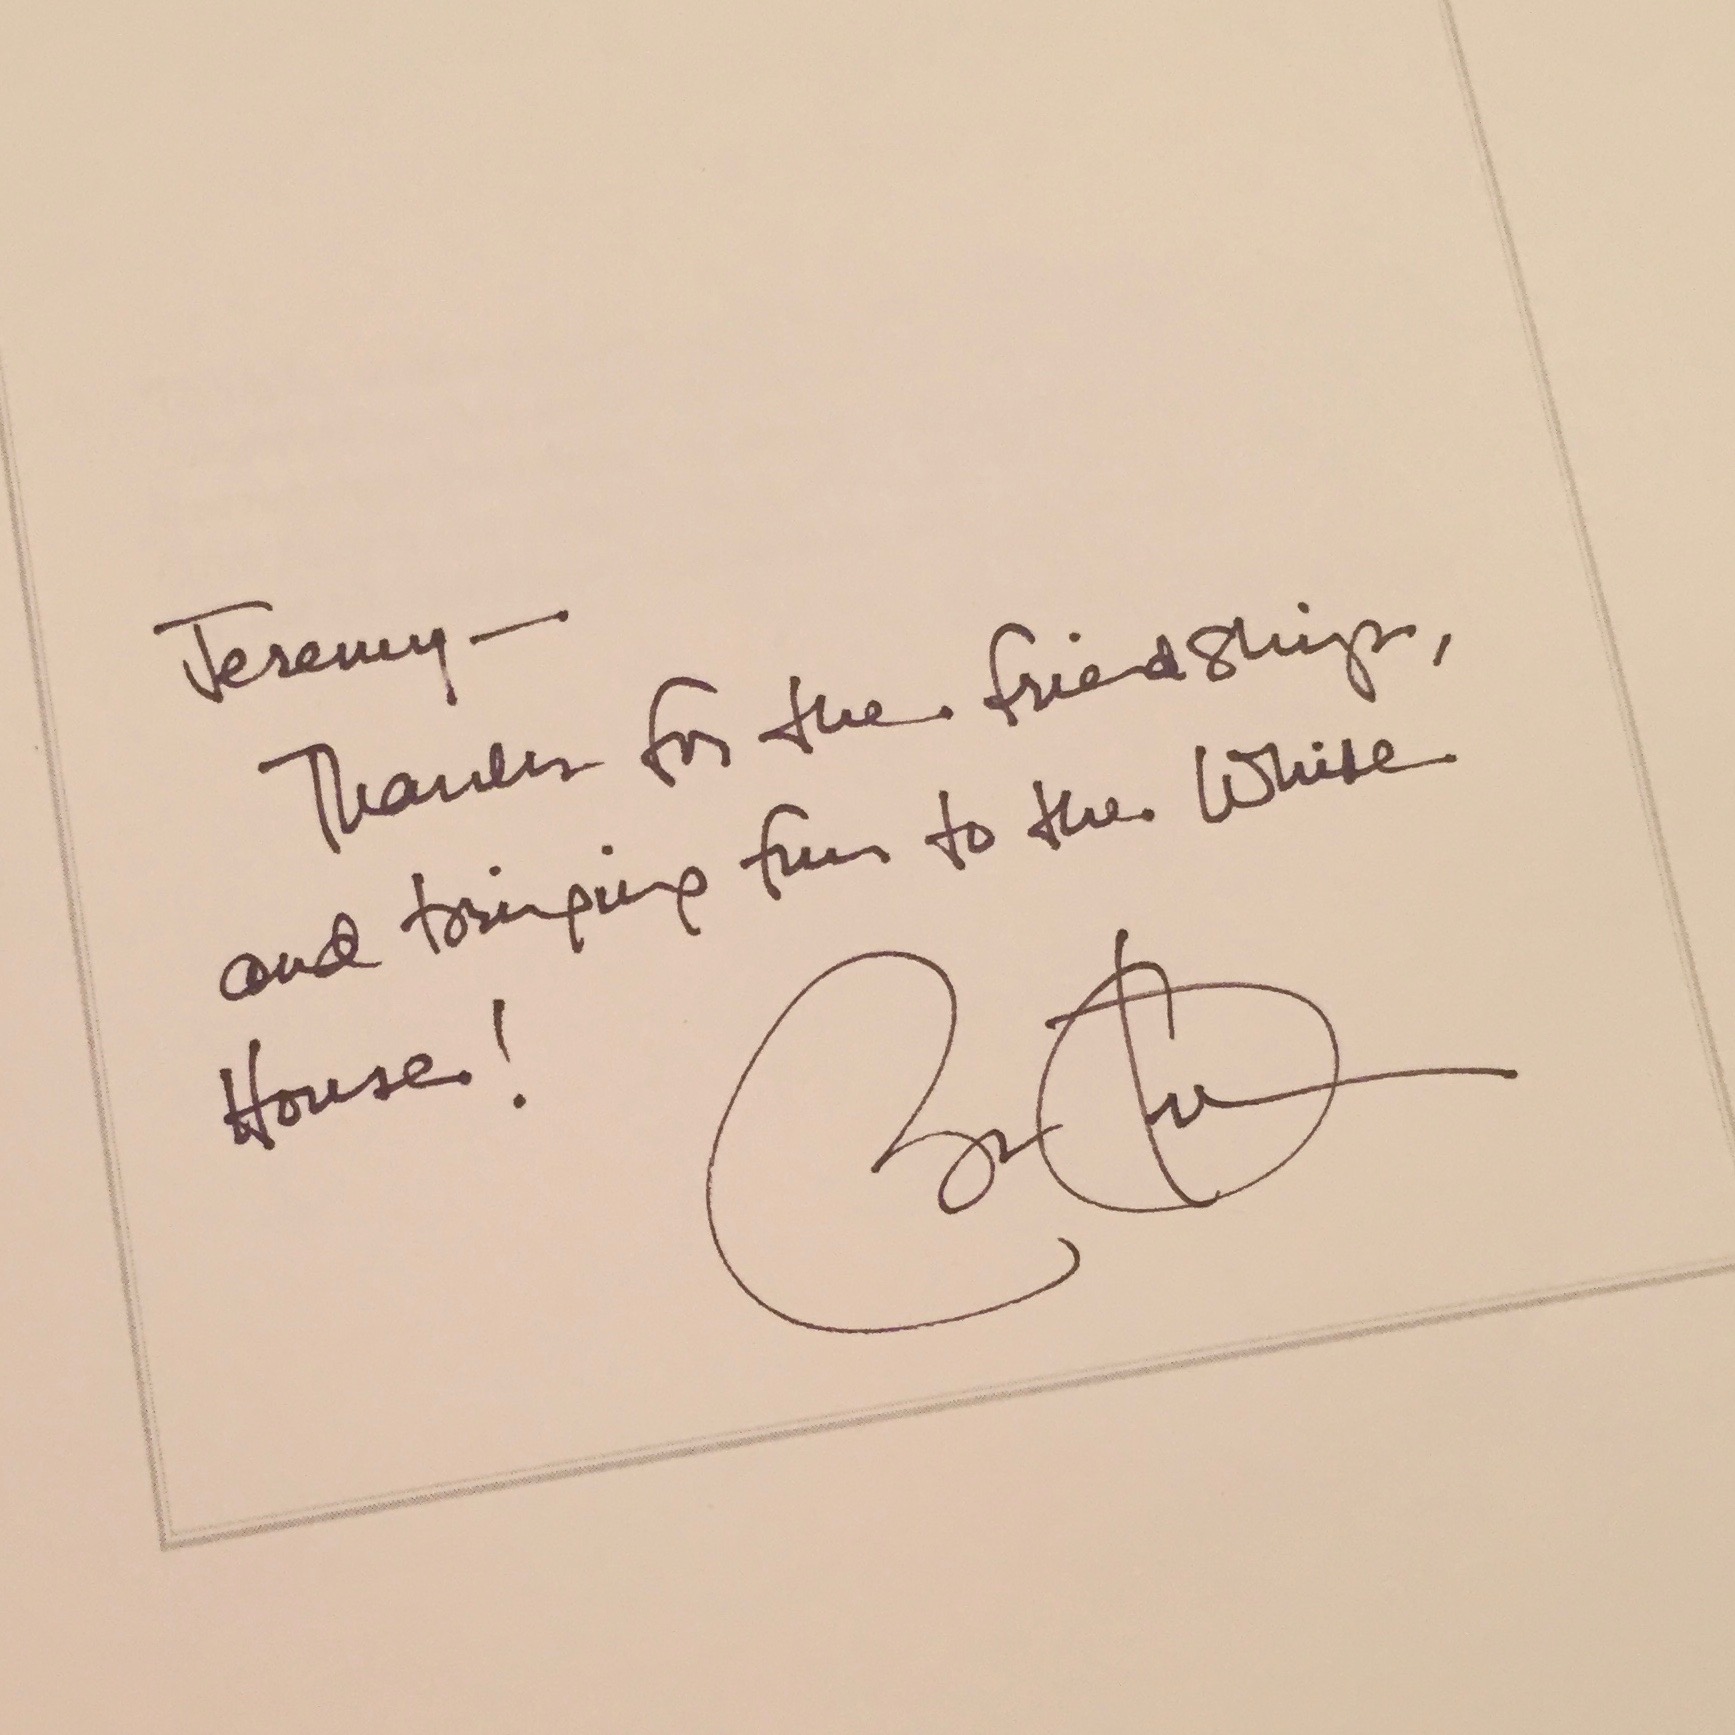 Jeremy—
Thanks for the friendship,
and bringing fun to the White
House!